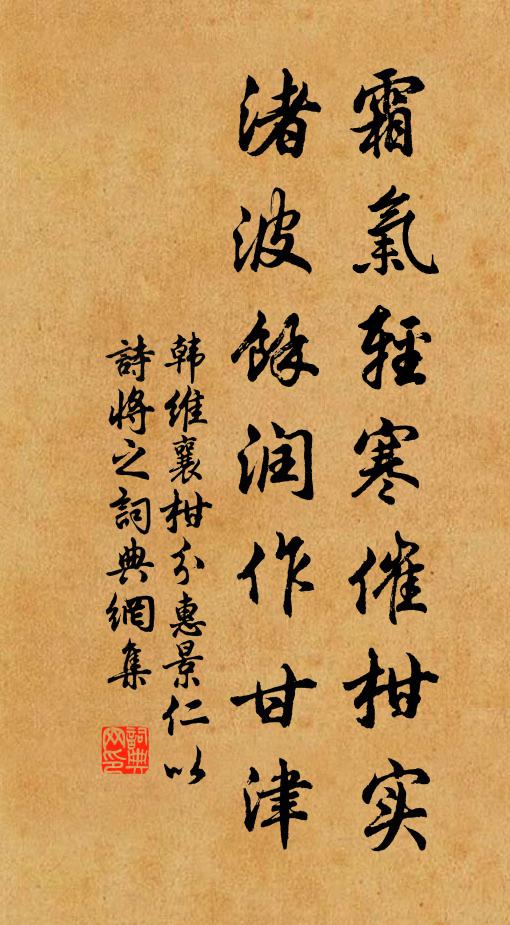 霜氣輕寒催柑实
渚波餘润作甘津
韩維襄柑分惠景仁以
詩將之詞典網集
詞典
网印